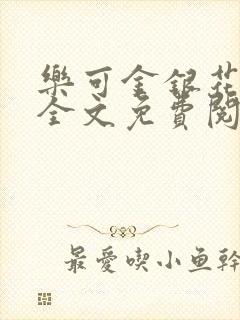 樂可金銀花
全文免費閱
最愛喫小魚幹